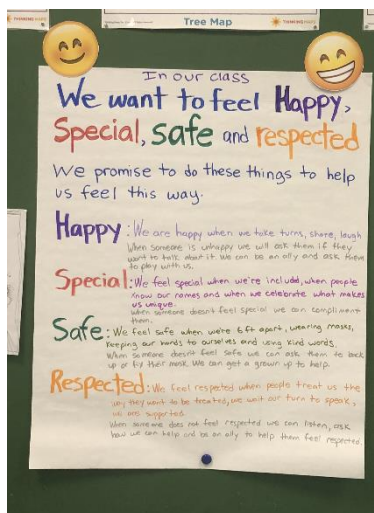 THINKING MAPS
Tree Map
THINKING MAPS
In our class
We want to feel Happy,
Special, safe and respected
We promise to do these things to help
us feel this way.
Happy: We are happy when we take turns, share, laugh
When someone is unhappy we will ask them if they
want to talk about it. We can be an ally and ask them
to play with us.
Special: We feel special when we're included, when people
know our names and when we celebrate what makes
us unique.
When someone doesn't feel special we can compliment
them.
Safe: We feel safe when we're 6ft apart, wearing masks,
keeping our hands to ourselves and using kind words.
When someone doesn't feel safe we can ask them to back
up or fix their mask. We can get a grown up to help.
Respected: We feel respected when people treat us the
way they want to be treated, we wait our turn to speak,
we are supported.
When someone does not feel respected we can listen, ask
how we can help and be an ally to help them feel respected.